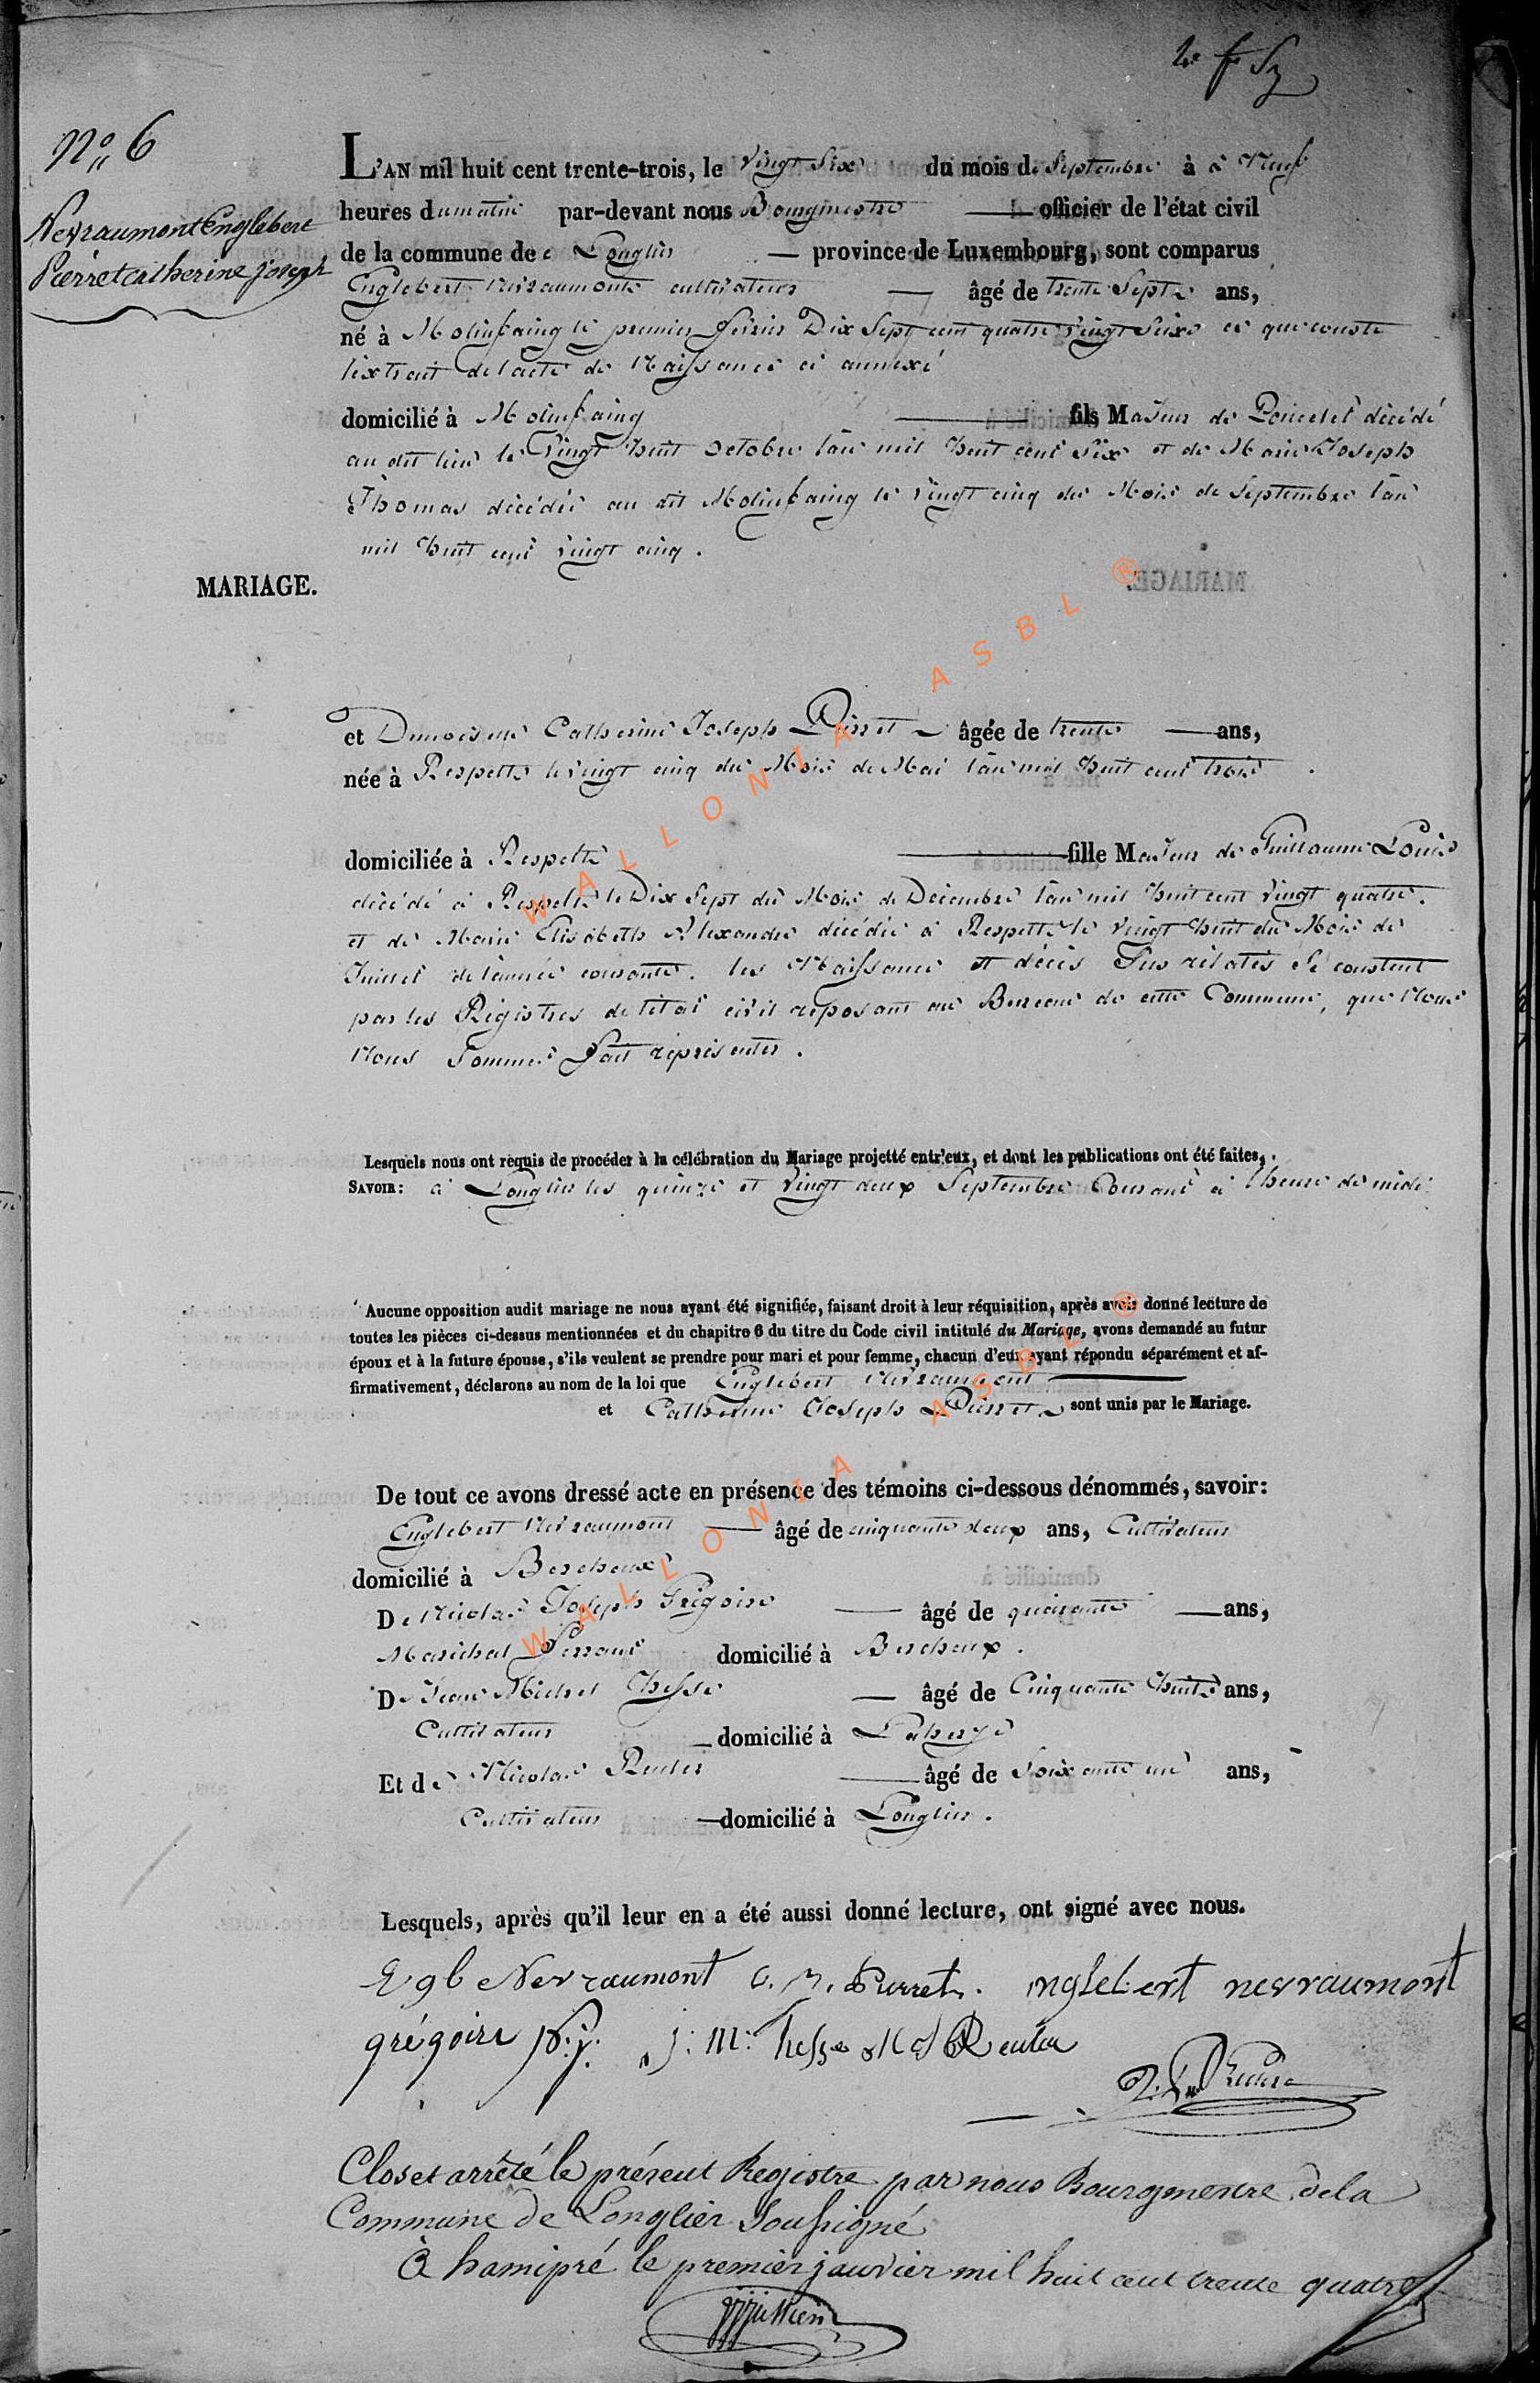 N° 6
Nevraumont Englebert
Pierret catherine joseph
L'AN mil huit cent trente-trois, le Vingt Six du mois de Septembre à à Neuf
heures du matin par-devant nous Bourgmestre officier de l'état civil
de la commune de Longlier province de Luxembourg, sont comparus
Englebert Nevraumont cultivateur âgé de trente Sept ans,
né à Molinfaing le premier fevrier Dix Sept cent quatre vingt Seize ce que conste
l'extrait de l'acte de Naissance ci annexé
domicilié à Molinfaing fils Majeur de Poncelet décédé
au dit lieu le Vingt huit Octobre l'an mil huit cent Six et de Marie Joseph
Thomas décédée au dit Molinfaing le Vingt cinq du Mois de Septembre l'an
mil huit cent vingt cinq.
MARIAGE.
et Demoiselle Catherine Joseph Pierret âgée de trente ans,
née à Respelt le vingt cinq du Mois de Mai l'an mil huit cent trois
domiciliée à Respelt fille Majeur de Guillaume Louis
décédé à Respelt le Dix Sept du Mois de Décembre l'an mil huit cent vingt quatre.
et de Marie Elisabeth Alexandre décédée à Respelt le vingt huit du Mois de
Juillet de l'année courante. les Naissance et décès Sus relatés Se constent
par les Régistres de l'état civil reposant au Bureau de cette Commune, que Nous
Nous Sommes fait représenter.
Lesquels nous ont requis de procéder à la célébration du Mariage projetté entr'eux, et dont les publications ont été faites,
SAVOIR: à Longlier les quinze et vingt deux Septembre Courant à l'heure de midi
Aucune opposition audit mariage ne nous ayant été signifiée, faisant droit à leur réquisition, après avoir donné lecture de
toutes les pièces ci-dessus mentionnées et du chapitre 6 du titre du Code civil intitulé du Mariage, avons demandé au futur
époux et à la future épouse, s'ils veulent se prendre pour mari et pour femme, chacun d'eux ayant répondu séparément et af-
firmativement, déclarons au nom de la loi que Englebert Nevraumont
et Catherine Joseph Pierret sont unis par le Mariage.
De tout ce avons dressé acte en présence des témoins ci-dessous dénommés, savoir:
Englebert Nevraumont âgé de cinquante deux ans, Cultivateur
domicilié à Bercheux
De Nicolas Joseph Grégoire âgé de quarante ans,
Maréchal ferrant domicilié à Bercheux.
De Jean Michel Thesse âgé de Cinquante huit ans,
Cultivateur domicilié à Laherye
Et de Nicolas Reuter âgé de Soixante un ans,
Cultivateur domicilié à Longlier.
Lesquels, après qu'il leur en a été aussi donné lecture, ont signé avec nous.
Eglb Nevraumont C. J. Pierret. inglebert nevraumont
grégoire N: j: J: M: Thesse Reuter
Clos et arrêté le présent Registre par nous Bourgmestre de la
Commune de Longlier Soussigné
A hamipré le premier janvier mil huit cent trente quatre
WALLONIA ASBL ®
WALLONIA ASBL ®